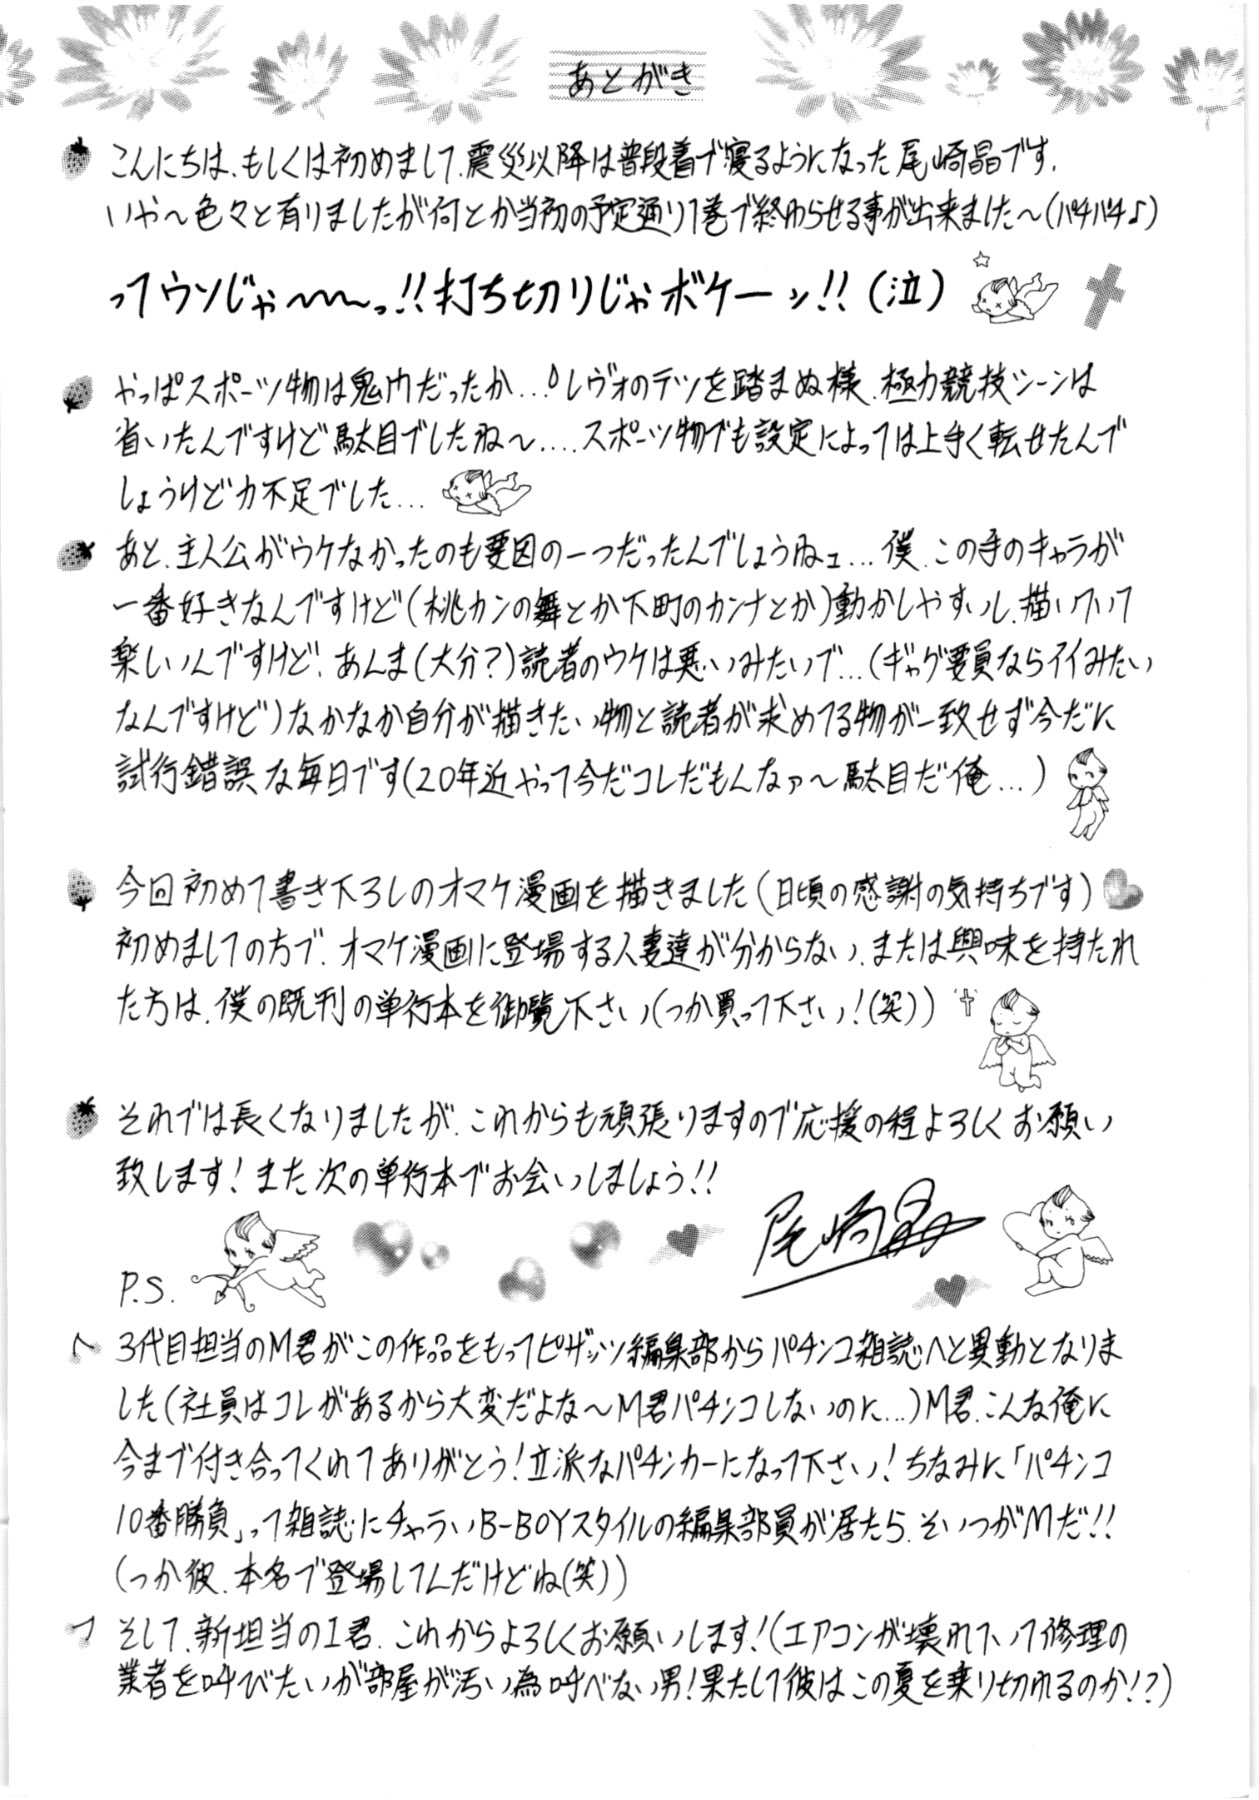 あとがき
こんにちは、もしくは初めまして、震災以降は普段着で寝るようになった尾崎晶です、
いや〜色々と有りましたが何とか当初の予定通り1巻で終わらせる事が出来ました〜(パチパチ♪)
ってウソじゃ〜〜〜っ!!打ち切りじゃボケーッ!!(泣)
やっぱスポーツ物は鬼門だったか...レヴォのテツを踏まぬ様、極力競技シーンは
省いたんですけど駄目でしたね〜....スポーツ物でも設定によっては上手く転せたんで
しょうけど力不足でした...
あと、主人公がウケなかったのも要因の一つだったんでしょうねェ...僕、この手のキャラが
一番好きなんですけど(桃カンの舞とか下町のカンナとか)動かしやすいし、描いてて
楽しいんですけど、あんま(大分?)読者のウケは悪いみたいで...(ギャグ要員ならイイみたい
なんですけど)なかなか自分が描きたい物と読者が求めてる物が一致せず今だに
試行錯誤な毎日です(20年近やって今だコレだもんなァ〜駄目だ俺...)
今回初めて書き下ろしのオマケ漫画を描きました(日頃の感謝の気持ちです)
初めましての方で、オマケ漫画に登場する人妻達が分からない、または興味を持たれ
た方は、僕の既刊の単行本を御覧下さい(つか買って下さい!(笑))
それでは長くなりましたが、これからも頑張りますので応援の程よろしくお願い
致します!また次の単行本でお会いしましょう!!
尾崎晶
P.S.
3代目担当のM君がこの作品をもってピザッツ編集部からパチンコ雑誌へと異動となりま
した(社員はコレがあるから大変だよな〜M君パチンコしないのに...)M君、こんな俺に
今まで付き合ってくれてありがとう!立派なパチンカーになって下さい!ちなみに「パチンコ
10番勝負」って雑誌にチャラいB-BOYスタイルの編集部員が居たら、そいつがMだ!!
(つか彼、本名で登場してんだけどね(笑))
そして、新担当のI君、これからよろしくお願いします!(エアコンが壊れていて修理の
業者を呼びたいが部屋が汚い為呼べない男!果たして彼はこの夏を乗り切れるのか!?)